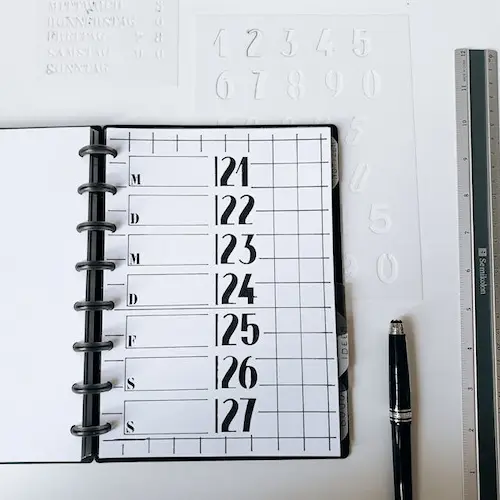 MITTWOCH
DONNERSTAG
FREITAG
SAMSTAG
SONNTAG
1 2 3 4 5
6 7 8 9 0
5
0
M 21
D 22
M 23
D 24
F 25
S 26
S 27
Semikolon